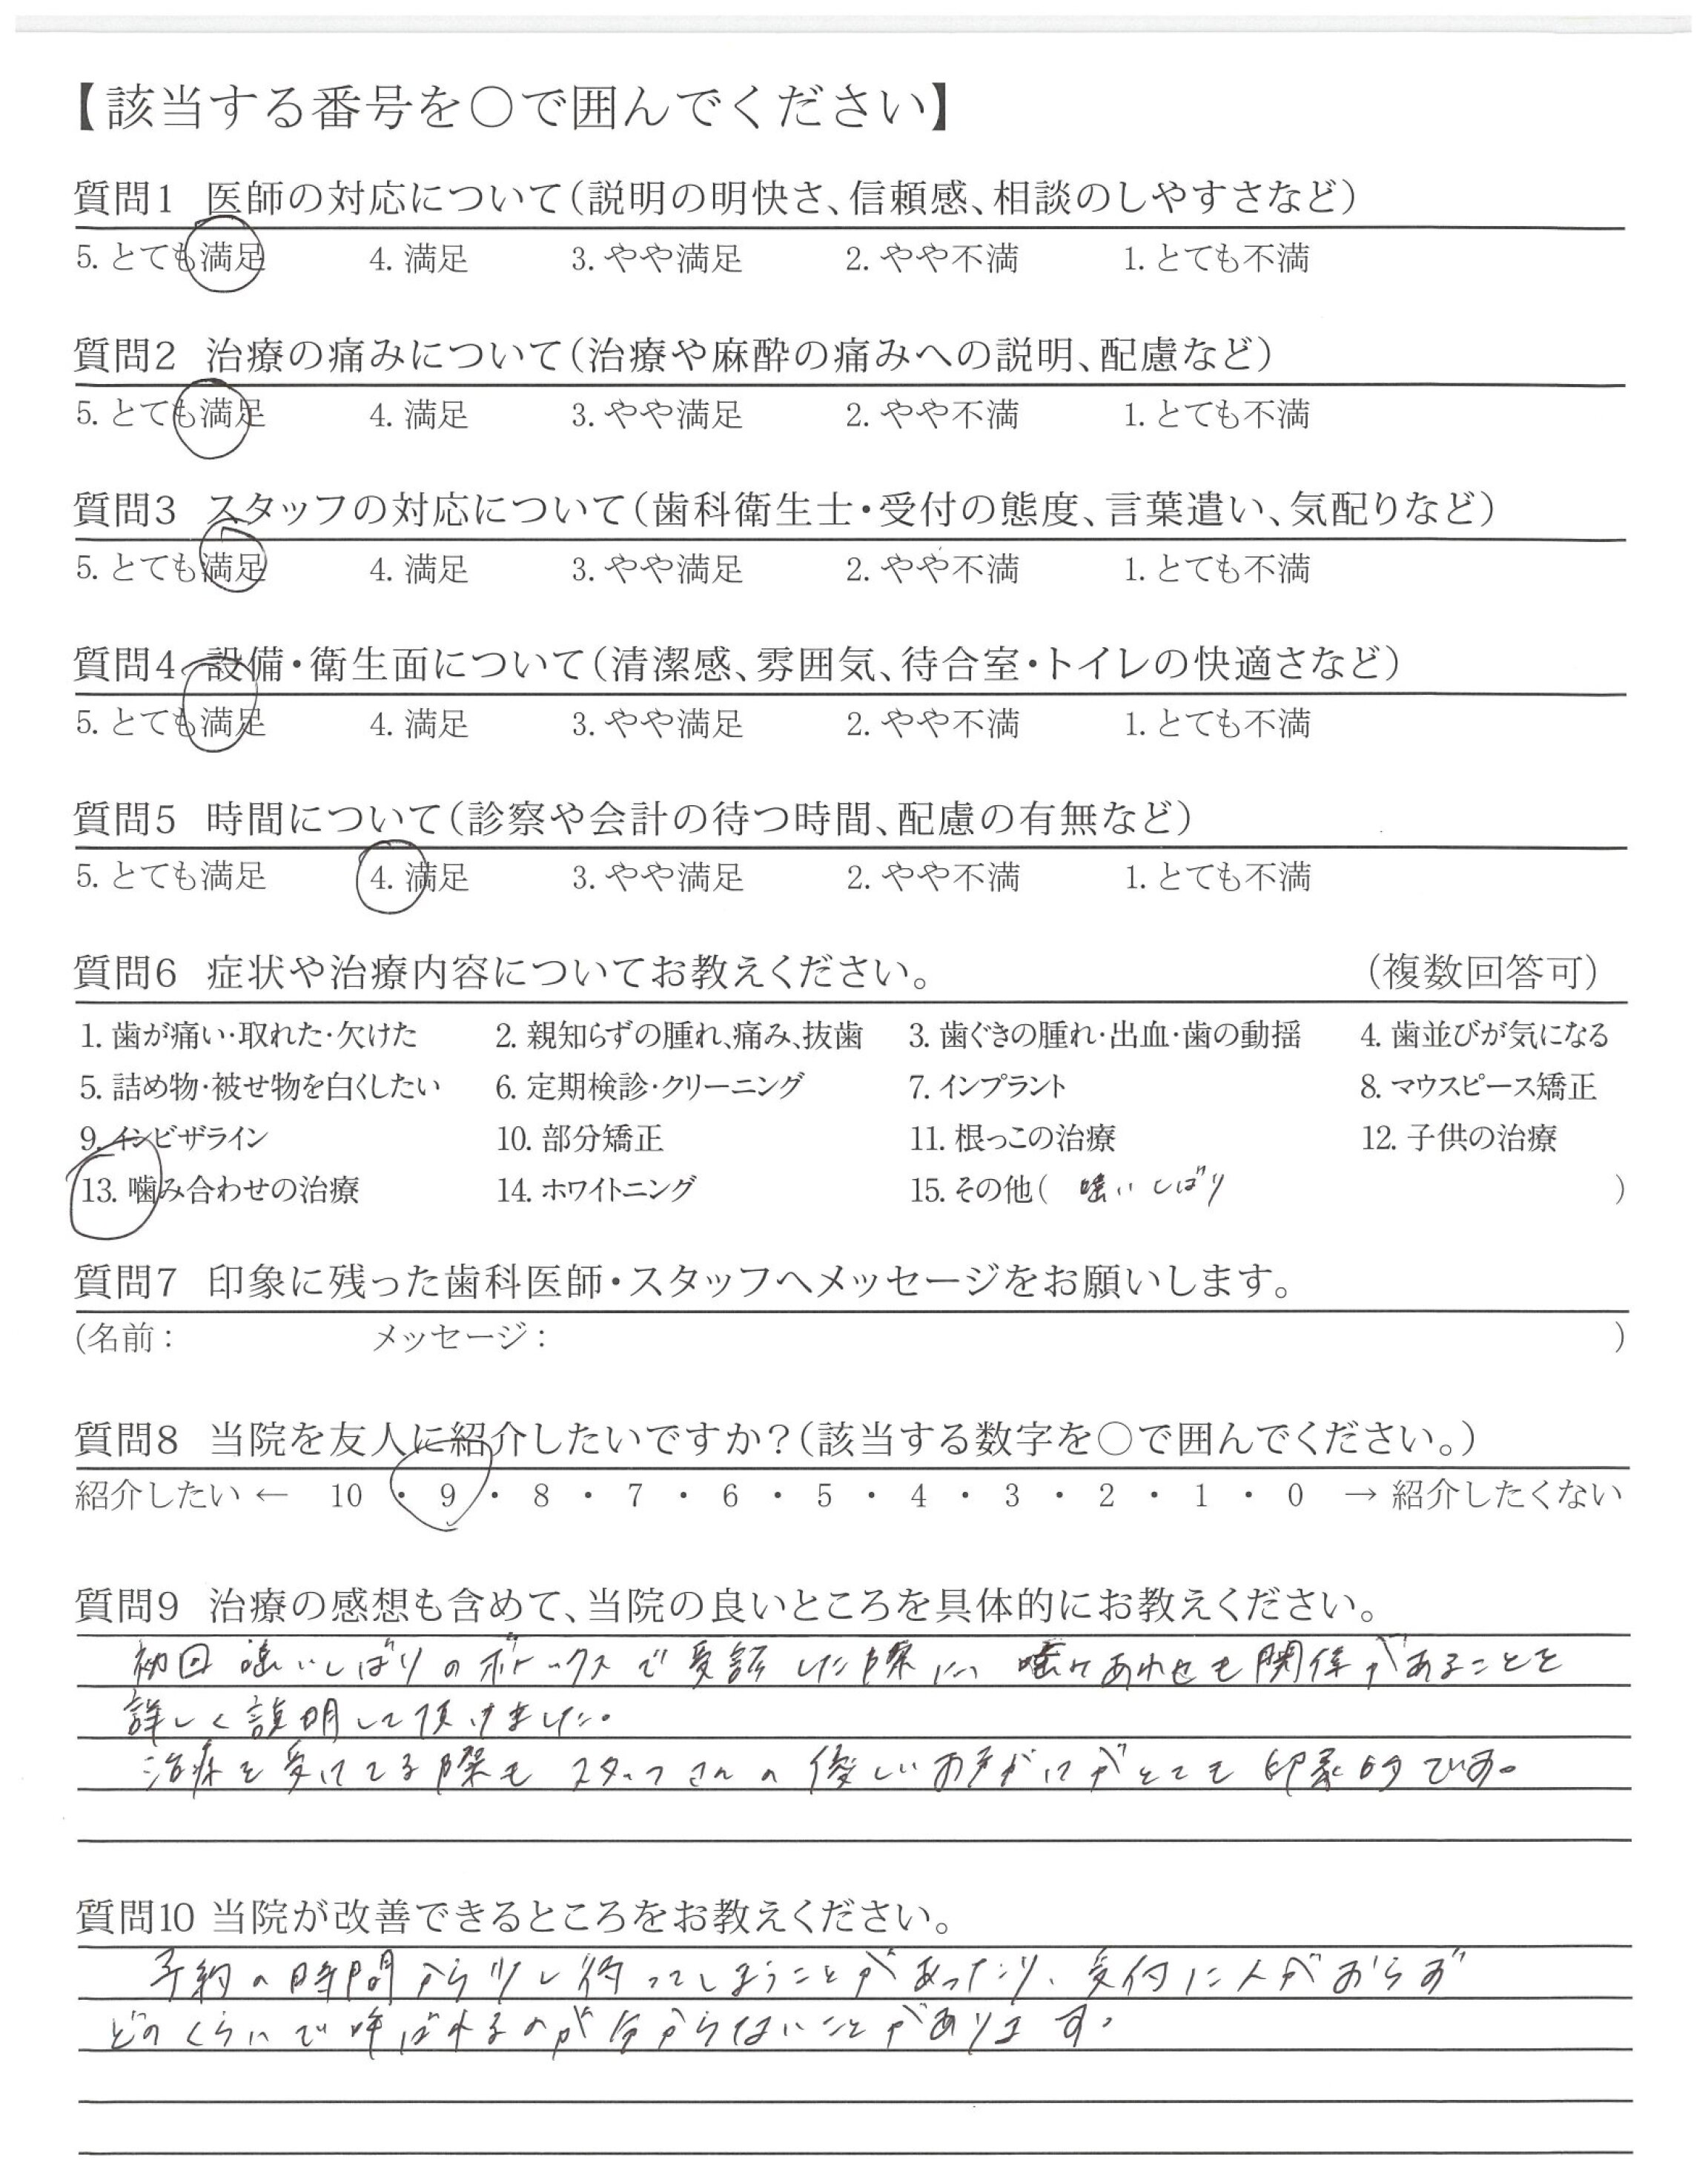 【該当する番号を○で囲んでください】
質問1 医師の対応について(説明の明快さ、信頼感、相談のしやすさなど)
5. とても満足 4. 満足 3. やや満足 2. やや不満 1. とても不満
質問2 治療の痛みについて(治療や麻酔の痛みへの説明、配慮など)
5. とても満足 4. 満足 3. やや満足 2. やや不満 1. とても不満
質問3 スタッフの対応について(歯科衛生士・受付の態度、言葉遣い、気配りなど)
5. とても満足 4. 満足 3. やや満足 2. やや不満 1. とても不満
質問4 設備・衛生面について(清潔感、雰囲気、待合室・トイレの快適さなど)
5. とても満足 4. 満足 3. やや満足 2. やや不満 1. とても不満
質問5 時間について(診察や会計の待つ時間、配慮の有無など)
5. とても満足 4. 満足 3. やや満足 2. やや不満 1. とても不満
質問6 症状や治療内容についてお教えください。 (複数回答可)
1. 歯が痛い・取れた・欠けた 2. 親知らずの腫れ、痛み、抜歯 3. 歯ぐきの腫れ・出血・歯の動揺 4. 歯並びが気になる
5. 詰め物・被せ物を白くしたい 6. 定期検診・クリーニング 7. インプラント 8. マウスピース矯正
9. インビザライン 10. 部分矯正 11. 根っこの治療 12. 子供の治療
13. 噛み合わせの治療 14. ホワイトニング 15. その他( 噛いしばり )
質問7 印象に残った歯科医師・スタッフへメッセージをお願いします。
(名前: メッセージ: )
質問8 当院を友人に紹介したいですか?(該当する数字を○で囲んでください。)
紹介したい ← 10 ・ 9 ・ 8 ・ 7 ・ 6 ・ 5 ・ 4 ・ 3 ・ 2 ・ 1 ・ 0 → 紹介したくない
質問9 治療の感想も含めて、当院の良いところを具体的にお教えください。
初回 噛いしばりのボトックスで受診した際に、噛みあわせも関係があることを
詳しく説明して頂けました。
治療を受けてる際も スタッフさんの優しいお声がけがとても印象的です。
質問10 当院が改善できるところをお教えください。
予約の時間から少し待ってしまうことがあったり、受付に人がおらず
どのくらいで呼ばれるのが分からないことがあります。